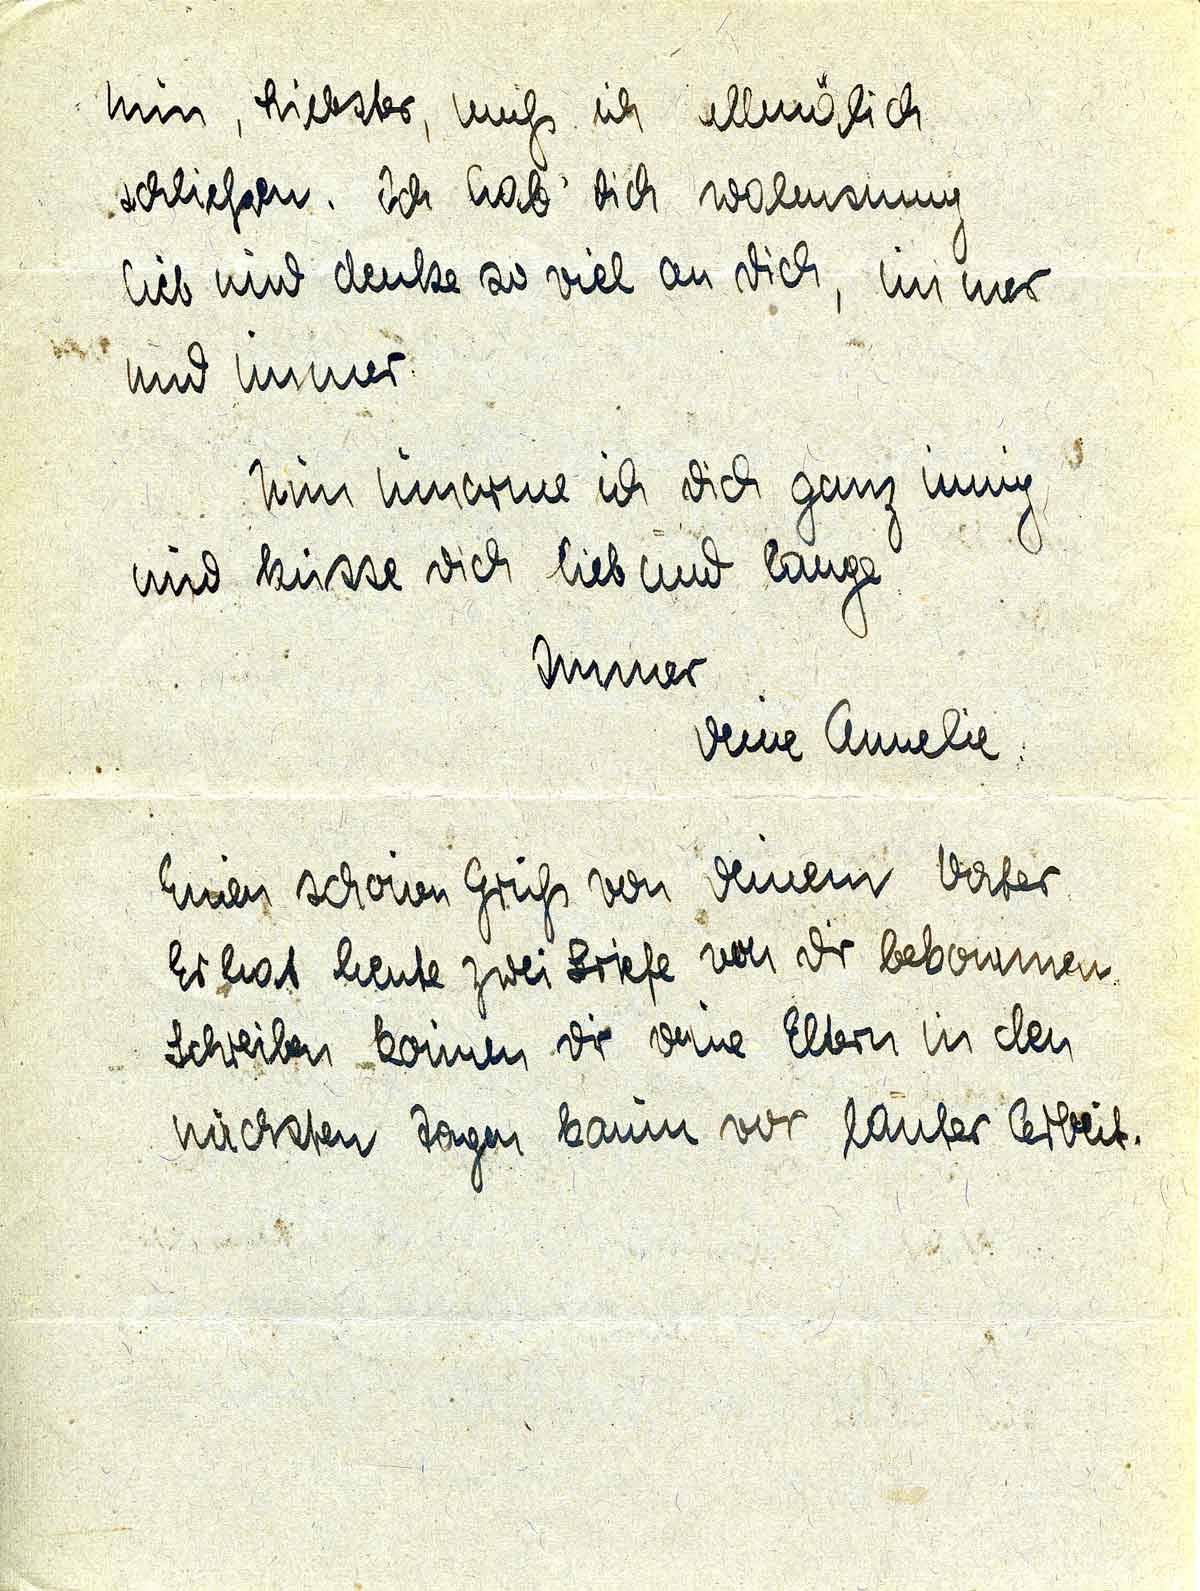 Nun, Liebster, muß ich allmälich
schließen. Ich hab' dich wahnsinnig
lieb und denke so viel an dich, immer
und immer.
Nun umarme ich dich ganz innig
und küsse dich lieb und lange.
Immer
deine Annelie.
Einen schönen Gruß von deinem Vater.
Er hat heute zwei Briefe von dir bekommen.
Schreiben können dir deine Eltern in den
nächsten Tagen kaum vor lauter Arbeit.